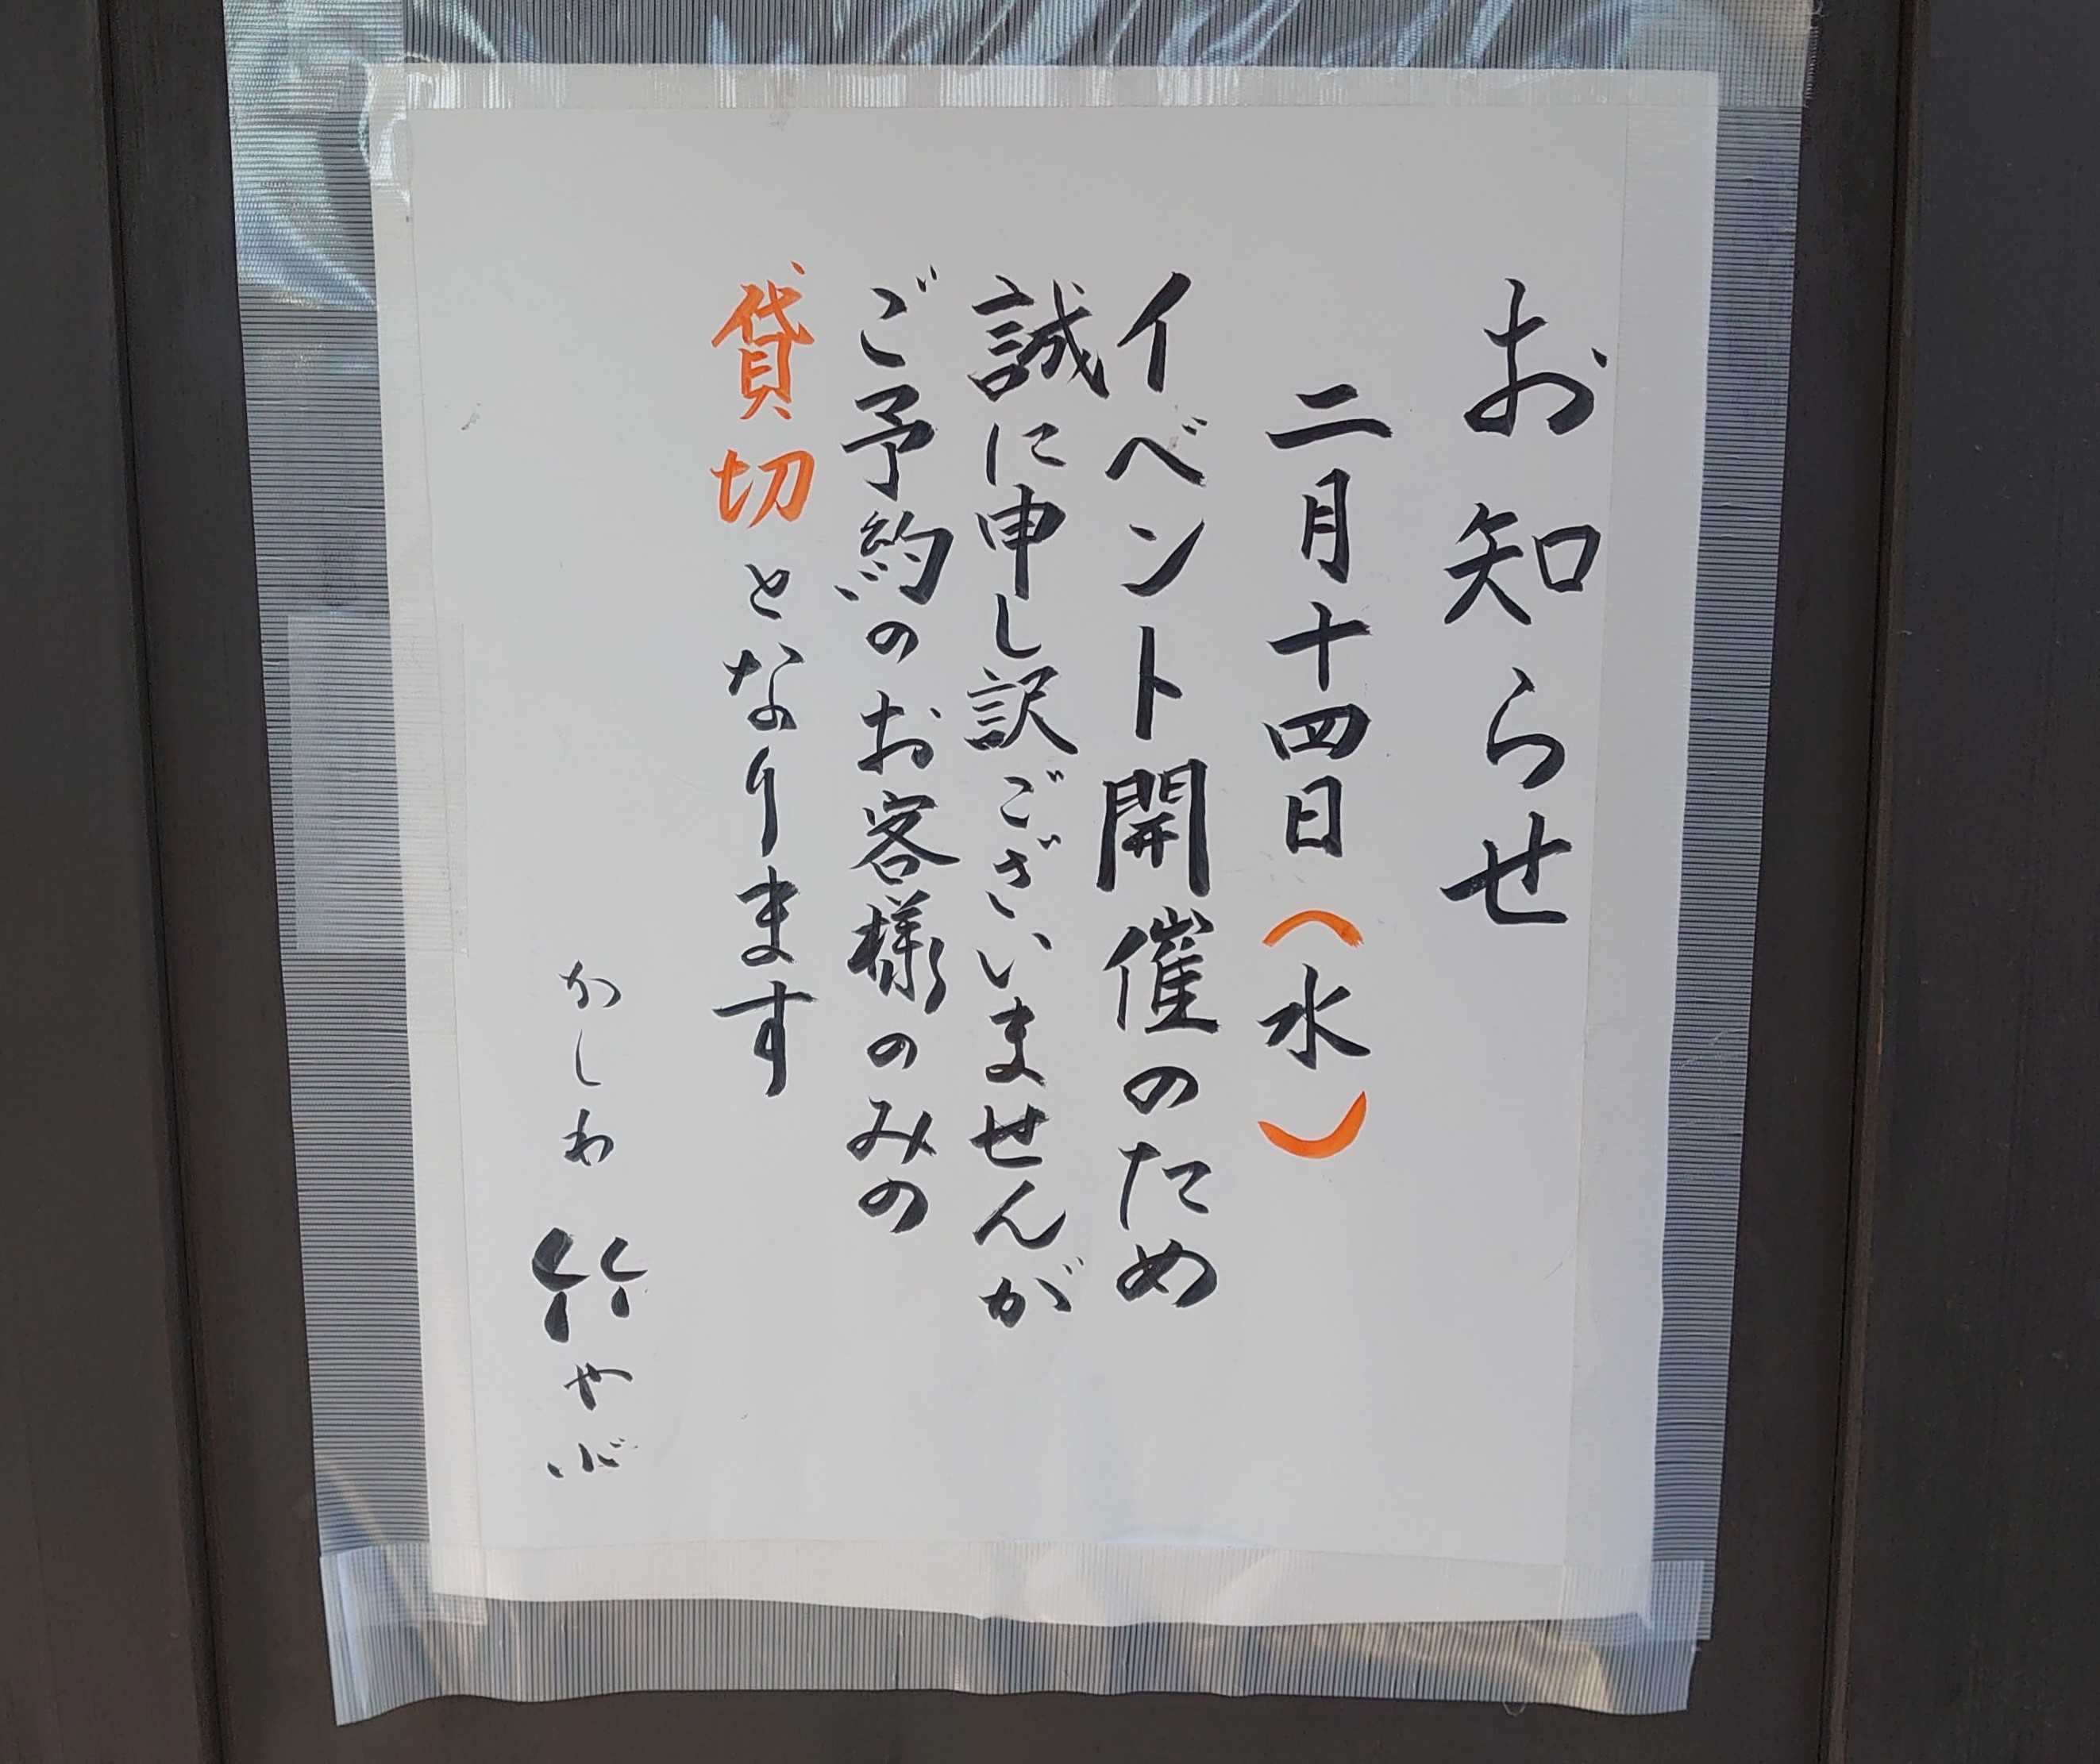 お知らせ
二月十四日(水)
イベント開催のため
誠に申し訳ございませんが
ご予約のお客様のみの
貸切となります
かしわ竹やぶ